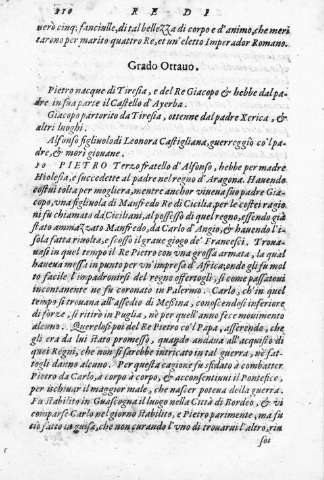 210 R E D I
uero cinq; fanciulle, di tal bellezza di corpo e d'animo, che meri
tarono per marito quattro Re, et un'eletto Imperador Romano.
Grado Ottauo.
Pietro nacque di Tiresia, e del Re Giacopo & hebbe dal pa-
dre in sua parte il Castello d'Ayerba.
Giacopo partorito da Tiresia, ottenne dal padre Xerica, &
altri luoghi.
Alfonso figliuolo di Leonora Castigliana, guerreggiò co'l pa-
dre, & morì giouane.
10 PIETRO Terzo fratello d'Alfonso, hebbe per madre
Hiolesia, e succedette al padre nel regno d'Aragona. Hauendo
costui tolta per mogliera, mentre anchor viueua suo padre Gia-
copo, vna figliuola di Manfredo Re di Cicilia, per le costei ragio
ni fu chiamato da Ciciliani, al possesso di quel regno, essendo già
stato ammazzato Manfredo, da Carlo d'Angio, & hauendo l'i-
sola fatta riuolta, e scosso il graue giogo de' Francesi. Troua-
uasi in quel tempo il Re Pietro con vna grossa armata, la qual
haueua messa in punto per vn'impresa d'Africa, onde gli fu mol
to facile l'impadronirsi del regno offertogli, sì come passatoui
incontanente ne fu coronato in Palermo. Carlo, ch'in quel
tempo si trouaua all'assedio di Messina, conoscendosi inferiore
di forze, si ritirò in Puglia, nè per quell'anno fece mouimento
alcuno. Querelosi poi del Re Pietro co'l Papa, asserendo, che
gli era da lui stato promesso, quando andaua all'acquisto di
quei Regni, che non si sarebbe intricato in tal guerra, nè fat-
togli danno alcuno. Per questa cagione fu sfidato à combatter
Pietro da Carlo, à corpo à corpo, & acconsentiuui il Pontefice,
per ischiuar il maggior male, che nascer poteua della guerra.
Fu stabilito in Guascogna il luogo nella Città di Bordeo, & vi
comparse Carlo nel giorno stabilito, e Pietro parimente, ma fu
ciò fatto in guisa, che non curando l'vno di trouarui l'altro, rin